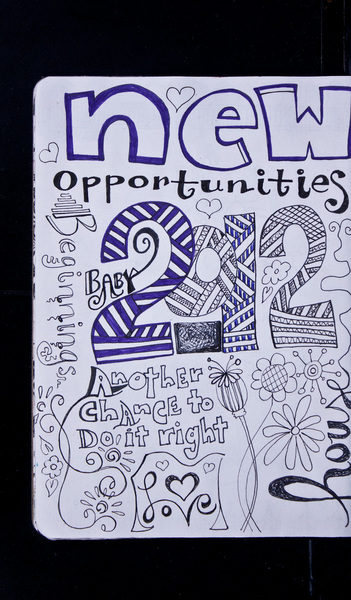 new
Opportunities
Beginnings
BABY
2012
Another
Chance to
Do it right
Love